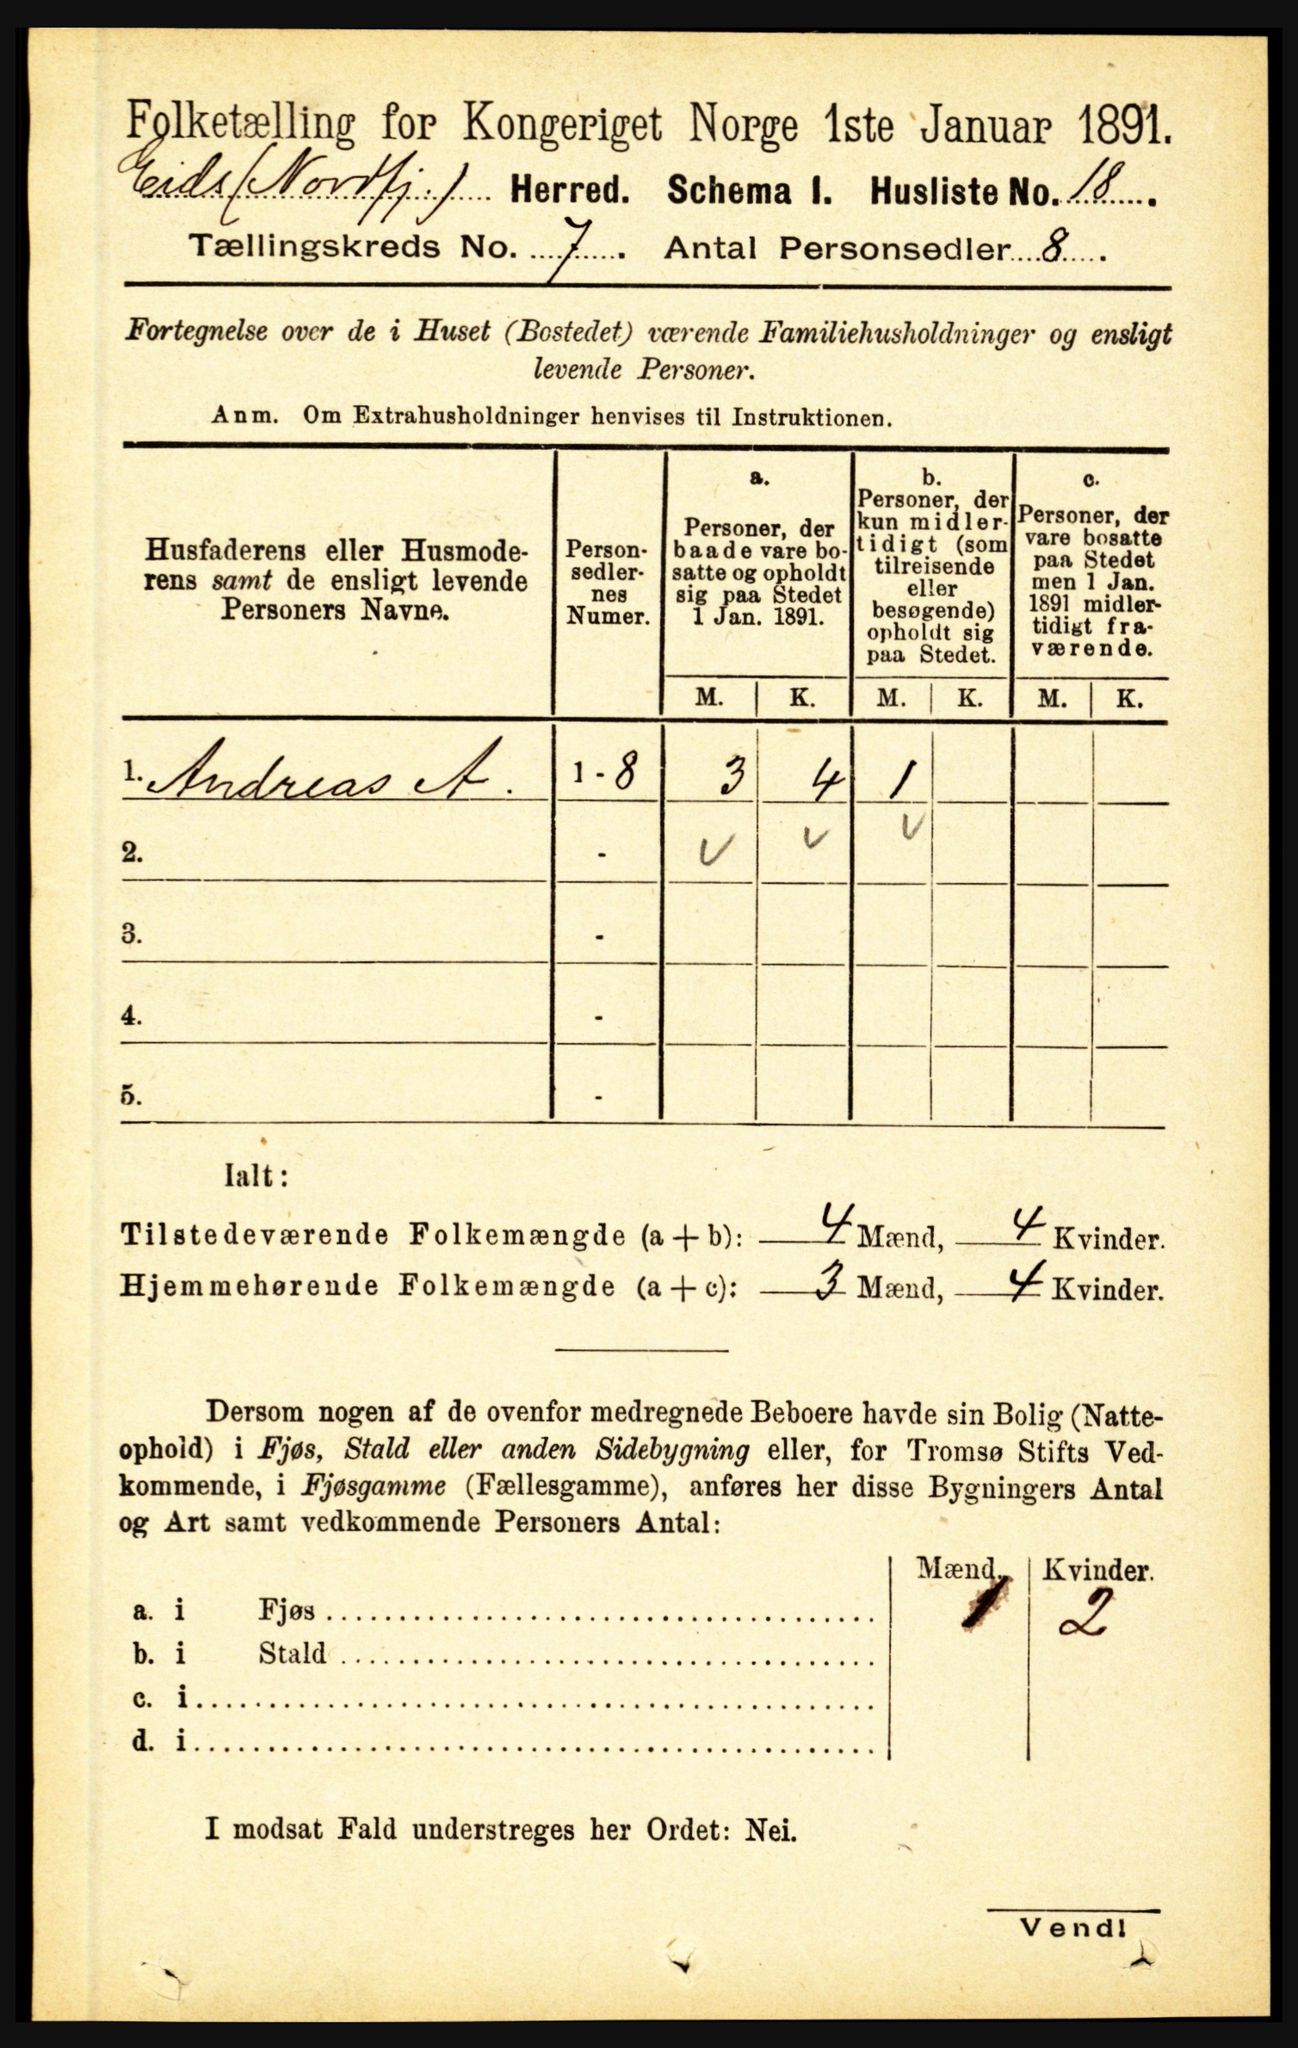 Folketælling for Kongeriget Norge 1ste Januar 1891.
Eids (Nordfj.) Herred. Schema I. Husliste No. 18.
Tællingskreds No. 7. Antal Personsedler 8.
Fortegnelse over de i Huset (Bostedet) værende Familiehusholdninger og ensligt
levende Personer.
Anm. Om Extrahusholdninger henvises til Instruktionen.
Husfaderens eller Husmode-
rens samt de ensligt levende
Personers Navne.
Person-
sedler-
nes
Numer.
a.
Personer, der
baade vare bo-
satte og opholdt
sig paa Stedet
1 Jan. 1891.
b.
Personer, der
kun midler-
tidigt (som
tilreisende
eller
besøgende)
opholdt sig
paa Stedet.
c.
Personer, der
vare bosatte
paa Stedet
men 1 Jan.
1891 midler-
tidigt fra-
værende.
M. K. M. K. M. K.
1. Andreas A. 1 - 8 3 4 1
2. - v v v
3. -
4. -
5. -
Ialt:
Tilstedeværende Folkemængde (a + b): 4 Mænd, 4 Kvinder.
Hjemmehørende Folkemængde (a + c): 3 Mænd, 4 Kvinder.
Dersom nogen af de ovenfor medregnede Beboere havde sin Bolig (Natte-
ophold) i Fjøs, Stald eller anden Sidebygning eller, for Tromsø Stifts Ved-
kommende, i Fjøsgamme (Fællesgamme), anføres her disse Bygningers Antal
og Art samt vedkommende Personers Antal:
Mænd. Kvinder.
a. i Fjøs 1 2
b. i Stald
c. i
d. i
I modsat Fald understreges her Ordet: Nei.
Vend!